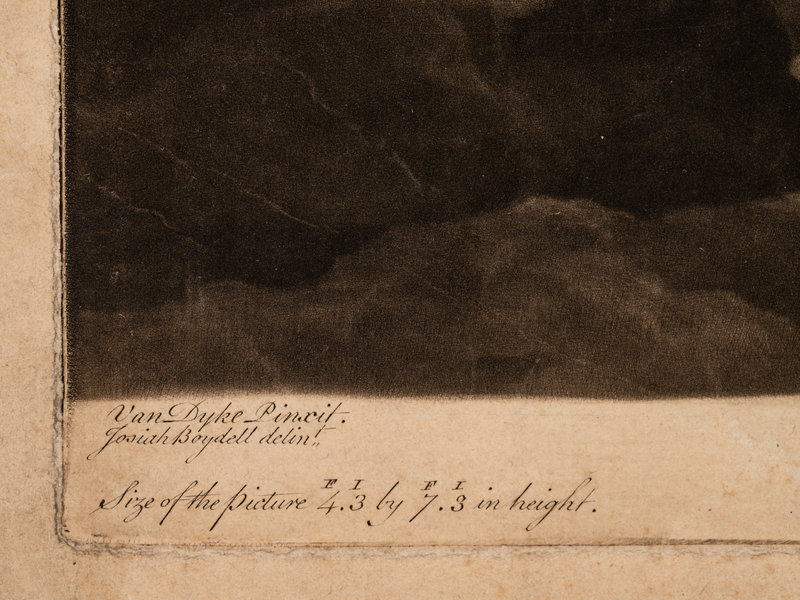 Van Dyke Pinxit.
Josiah Boydell delin.t
Size of the picture 4.F 3.I by 7.F 3.I in height.